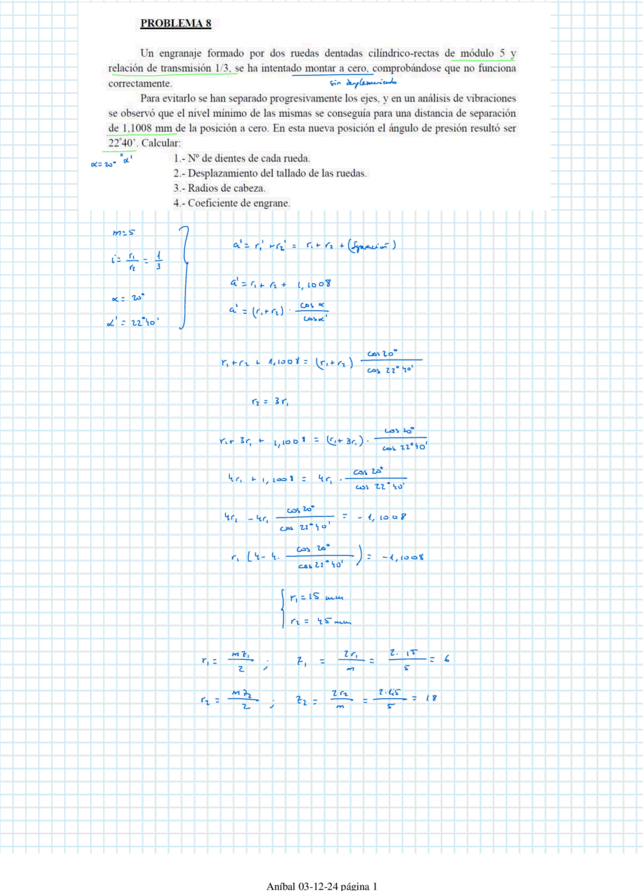 PROBLEMA 8
Un engranaje formado por dos ruedas dentadas cilíndrico-rectas de módulo 5 y
relación de transmisión 1/3, se ha intentado montar a cero, comprobándose que no funciona
correctamente.
sin desplazamiento
Para evitarlo se han separado progresivamente los ejes, y en un análisis de vibraciones
se observó que el nivel mínimo de las mismas se conseguía para una distancia de separación
de 1,1008 mm de la posición a cero. En esta nueva posición el ángulo de presión resultó ser
22º40'. Calcular:
α=20° α'
1.- Nº de dientes de cada rueda.
2.- Desplazamiento del tallado de las ruedas.
3.- Radios de cabeza.
4.- Coeficiente de engrane.
m=5
i = r₁/r₂ = 1/3
α = 20°
α' = 22°40'
a' = r₁' + r₂' = r₁ + r₂ + (Separación)
a' = r₁ + r₂ + 1,1008
a' = (r₁+r₂) · cos α / cos α'
r₁ + r₂ + 1,1008 = (r₁+r₂) cos 20° / cos 22°40'
r₂ = 3r₁
r₁ + 3r₁ + 1,1008 = (r₁+3r₁) · cos 20° / cos 22°40'
4r₁ + 1,1008 = 4r₁ · cos 20° / cos 22°40'
4r₁ - 4r₁ cos 20° / cos 22°40' = -1,1008
r₁ (4 - 4 · cos 20° / cos 22°40') = -1,1008
r₁ = 15 mm
r₂ = 45 mm
r₁ = mz₁/2 ; z₁ = 2r₁/m = 2·15/5 = 6
r₂ = mz₂/2 ; z₂ = 2r₂/m = 2·45/5 = 18
Aníbal 03-12-24 página 1